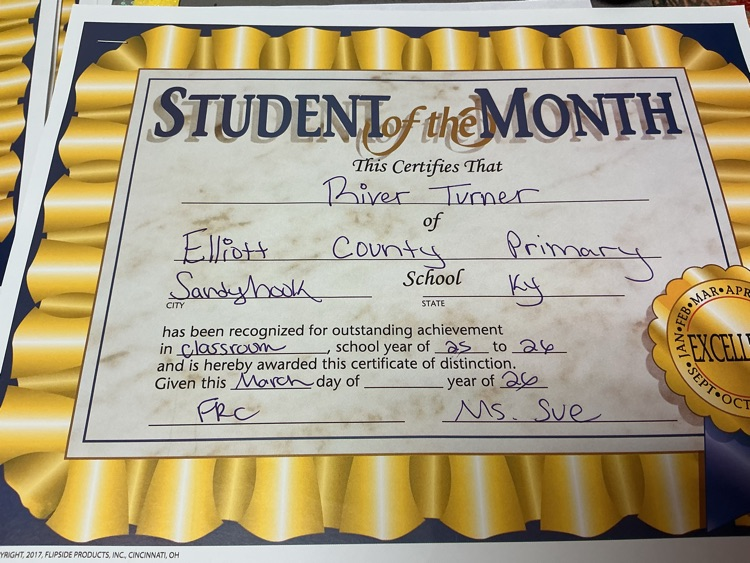 STUDENT of the MONTH
This Certifies That
River Turner
of
Elliott County Primary
Sandyhook School Ky
CITY STATE
has been recognized for outstanding achievement
in classroom, school year of 25 to 26
and is hereby awarded this certificate of distinction.
Given this March day of year of 26
FRC Ms. Sue
JAN•FEB•MAR•APR
EXCELLE
•SEPT•OCT
YRIGHT, 2017, FLIPSIDE PRODUCTS, INC., CINCINNATI, OH